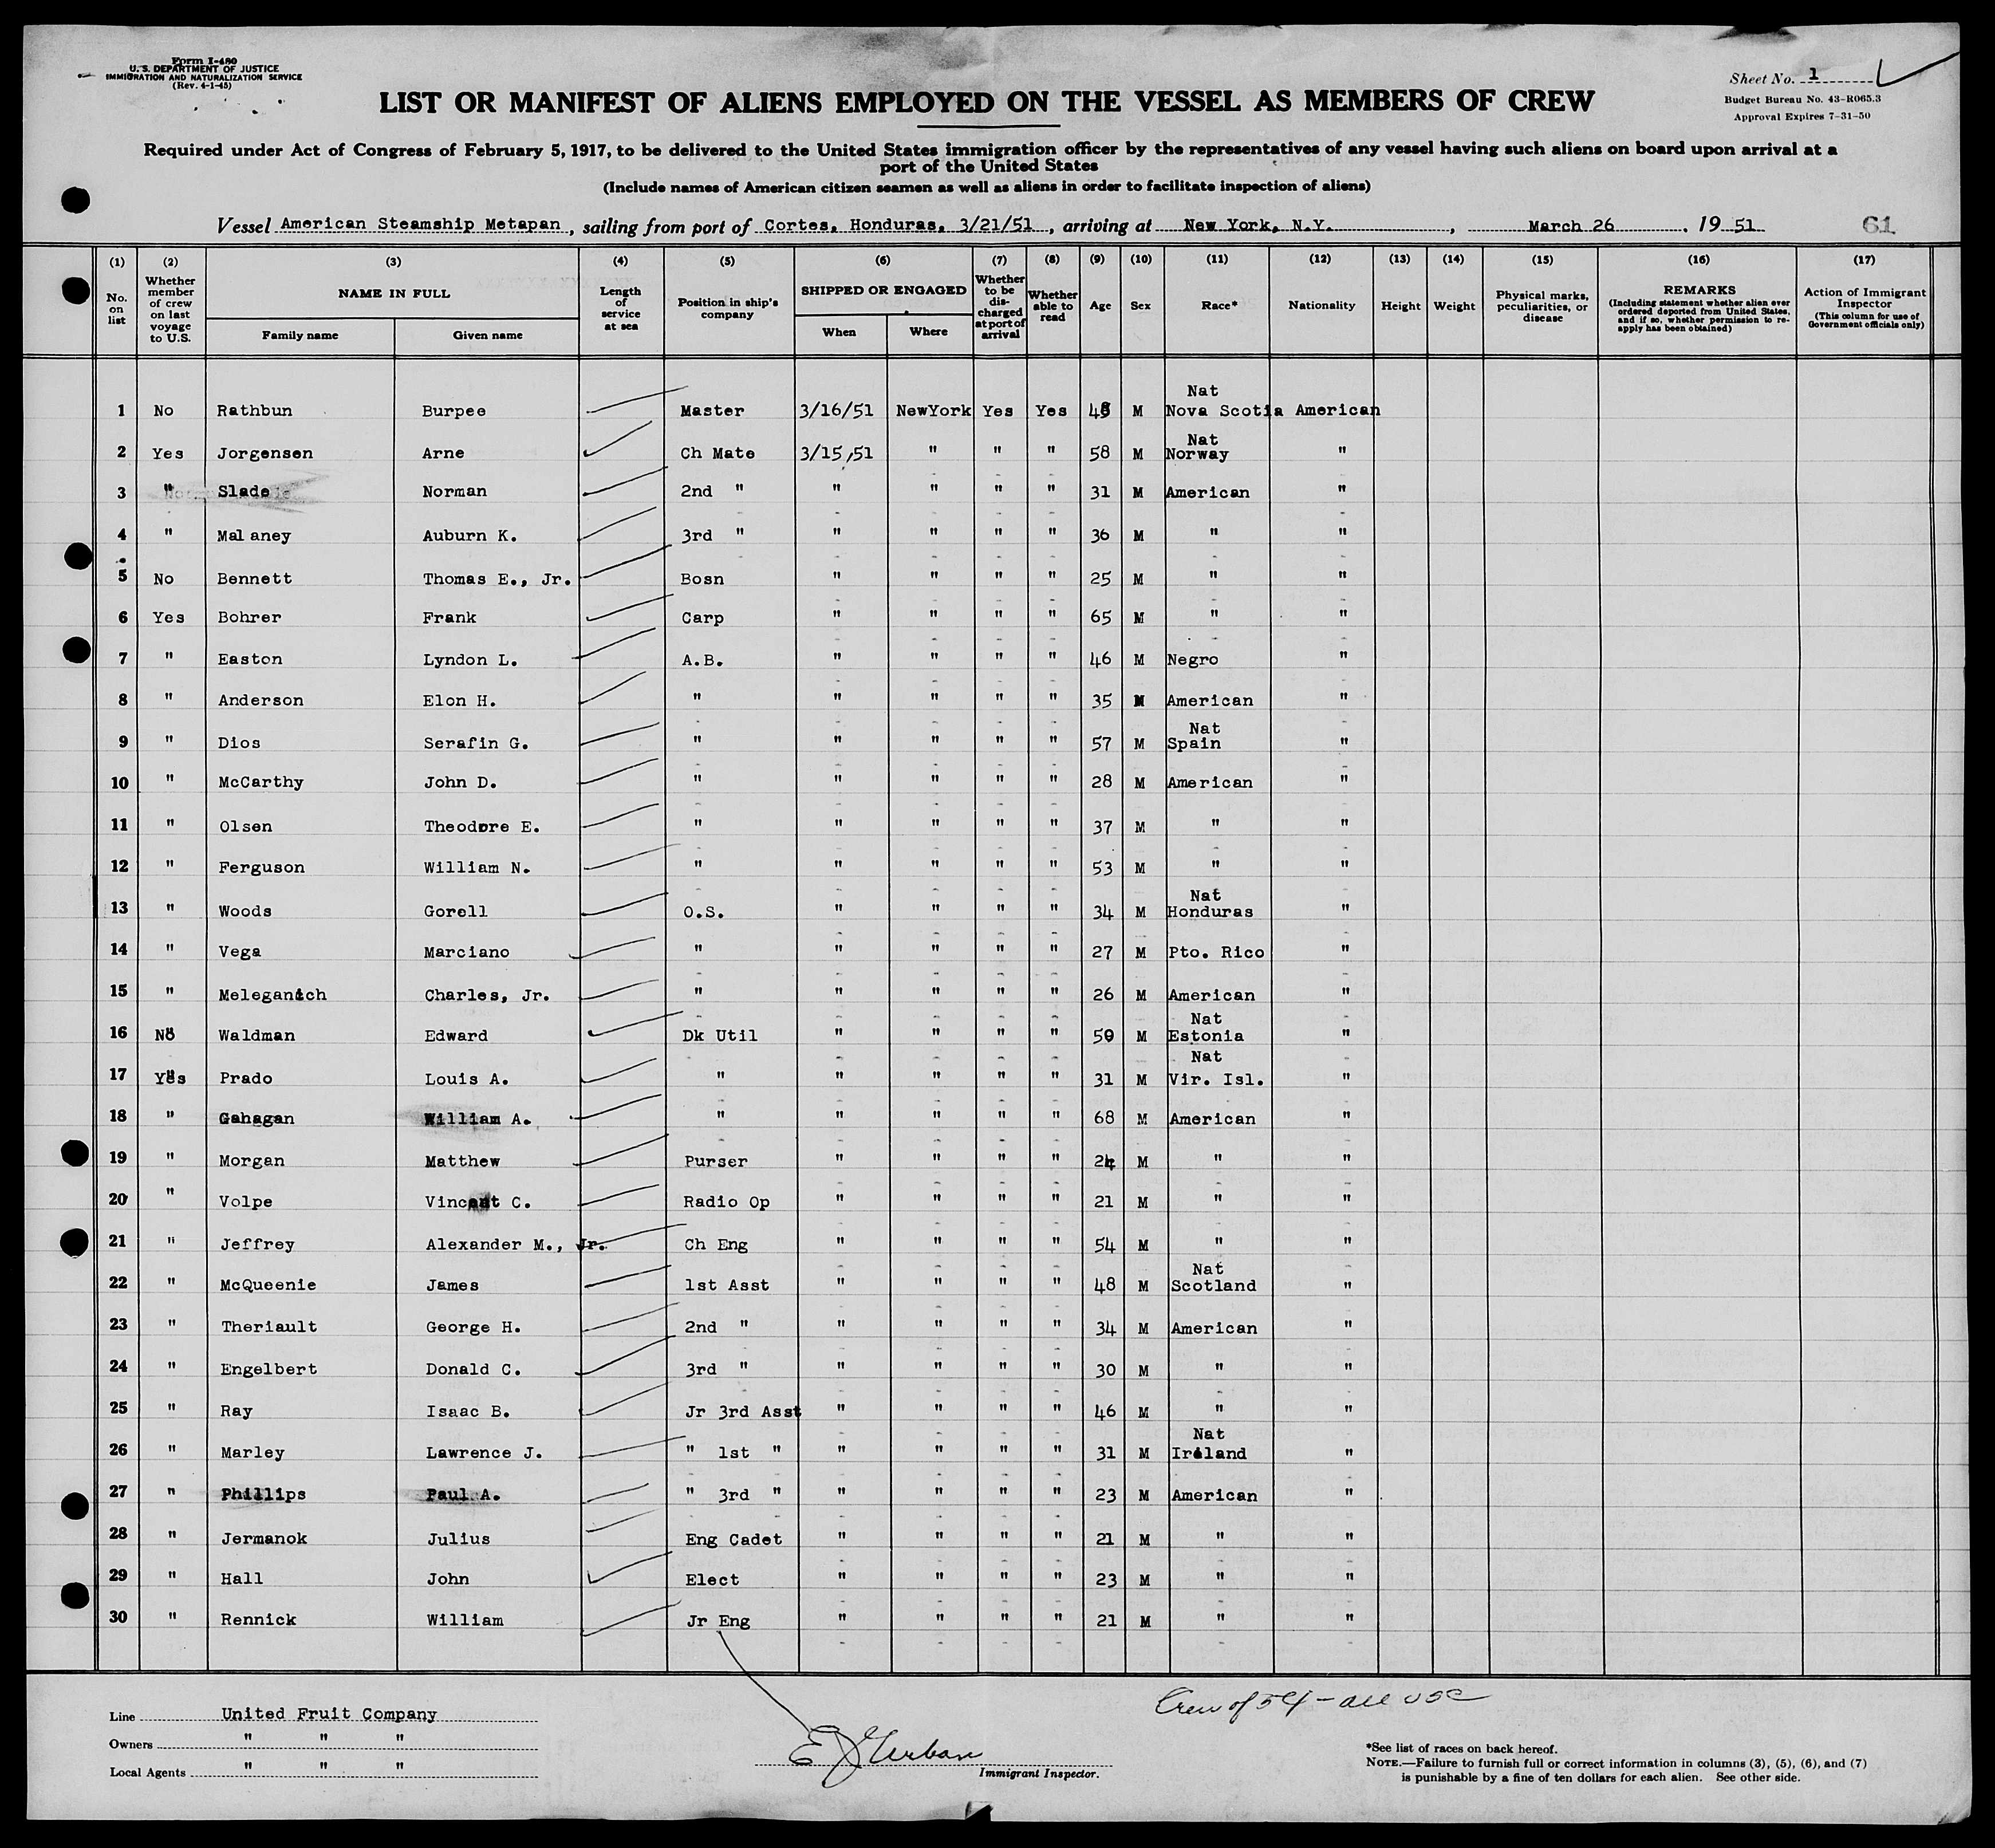 Form I-480
U. S. DEPARTMENT OF JUSTICE
IMMIGRATION AND NATURALIZATION SERVICE
(Rev. 4-1-45)
Sheet No. 1
Budget Bureau No. 43-R065.3
Approval Expires 7-31-50
LIST OR MANIFEST OF ALIENS EMPLOYED ON THE VESSEL AS MEMBERS OF CREW
Required under Act of Congress of February 5, 1917, to be delivered to the United States immigration officer by the representatives of any vessel having such aliens on board upon arrival at a
port of the United States
(Include names of American citizen seamen as well as aliens in order to facilitate inspection of aliens)
Vessel American Steamship Metapan, sailing from port of Cortes, Honduras, 3/21/51, arriving at New York, N.Y., March 26, 1951 61
(1) No. on list
(2) Whether member of crew on last voyage to U.S.
(3) NAME IN FULL Family name Given name
(4) Length of service at sea
(5) Position in ship's company
(6) SHIPPED OR ENGAGED When Where
(7) Whether to be discharged at port of arrival
(8) Whether able to read
(9) Age
(10) Sex
(11) Race*
(12) Nationality
(13) Height
(14) Weight
(15) Physical marks, peculiarities, or disease
(16) REMARKS (Including statement whether alien ever ordered deported from United States, and if so, whether permission to reapply has been obtained)
(17) Action of Immigrant Inspector (This column for use of Government officials only)
1 No Rathbun Burpee Master 3/16/51 NewYork Yes Yes 48 M Nat Nova Scotia American
2 Yes Jorgensen Arne Ch Mate 3/15,51 " " " 58 M Nat Norway "
3 " Slade Norman 2nd " " " " " 31 M American "
4 " Malaney Auburn K. 3rd " " " " " 36 M " "
5 No Bennett Thomas E., Jr. Bosn " " " " 25 M " "
6 Yes Bohrer Frank Carp " " " " 65 M " "
7 " Easton Lyndon L. A.B. " " " " 46 M Negro "
8 " Anderson Elon H. " " " " " 35 M American "
9 " Dios Serafin G. " " " " " 57 M Nat Spain "
10 " McCarthy John D. " " " " " 28 M American "
11 " Olsen Theodore E. " " " " " 37 M " "
12 " Ferguson William N. " " " " " 53 M " "
13 " Woods Gorell O.S. " " " " 34 M Nat Honduras "
14 " Vega Marciano " " " " " 27 M Pto. Rico "
15 " Meleganich Charles, Jr. " " " " " 26 M American "
16 No Waldman Edward Dk Util " " " " 50 M Nat Estonia "
17 Yes Prado Louis A. " " " " " 31 M Nat Vir. Isl. "
18 " Gahagan William A. " " " " " 68 M American "
19 " Morgan Matthew Purser " " " " 24 M " "
20 " Volpe Vincent C. Radio Op " " " " 21 M " "
21 " Jeffrey Alexander M., Jr. Ch Eng " " " " 54 M " "
22 " McQueenie James 1st Asst " " " " 48 M Nat Scotland "
23 " Theriault George H. 2nd " " " " " 34 M American "
24 " Engelbert Donald C. 3rd " " " " " 30 M " "
25 " Ray Isaac B. Jr 3rd Asst " " " " 46 M " "
26 " Marley Lawrence J. " 1st " " " " " 31 M Nat Ireland "
27 " Phillips Paul A. " 3rd " " " " " 23 M American "
28 " Jermanok Julius Eng Cadet " " " " 21 M " "
29 " Hall John Elect " " " " 23 M " "
30 " Rennick William Jr Eng " " " " 21 M " "
Crew of 54 - all USC
Line United Fruit Company
Owners " " "
Local Agents " " "
E J Urban
Immigrant Inspector.
*See list of races on back hereof.
NOTE.—Failure to furnish full or correct information in columns (3), (5), (6), and (7)
is punishable by a fine of ten dollars for each alien. See other side.